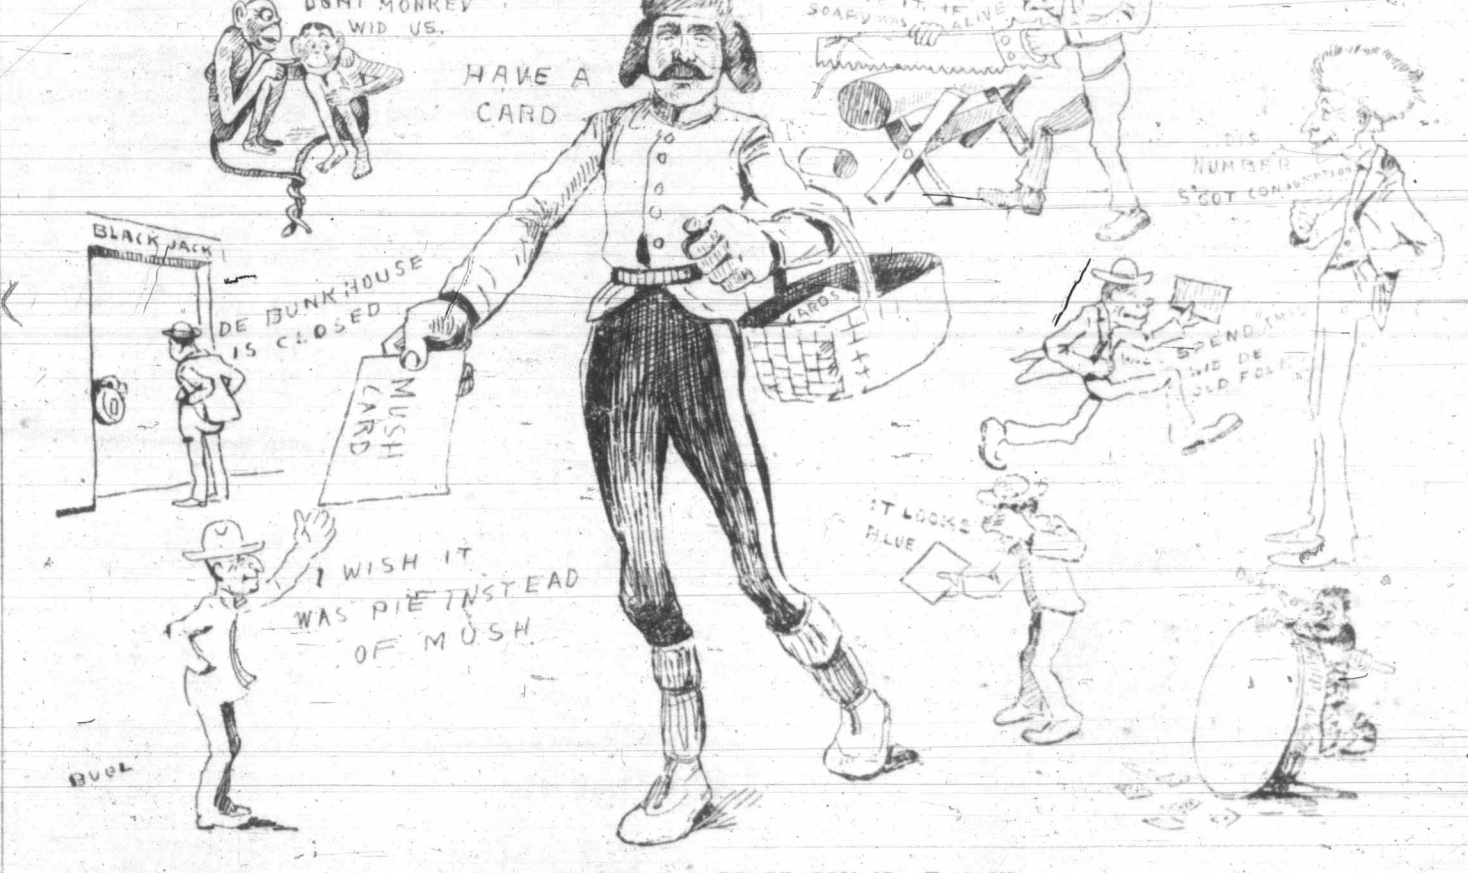 DON'T MONKEY
WID US.
HAVE A
CARD
IT, IF
SOAPY WAS ALIVE
DIS
NUMBER
S'GOT CONSUMPTION
BLACK JACK
DE BUNKHOUSE
IS CLOSED
MUSH
CARD
CARDS
SPEND THIS
WID DE
OLD FOLKS
IT LOOKS
BLUE
I WISH IT
WAS PIE INSTEAD
OF MUSH